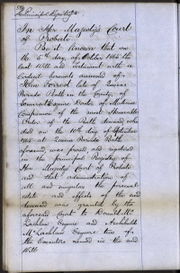 In Her Majesty's Court
of Probate
Be it Known that on
the 5th day of October 186
the last Will and Testament with
Codicil annexed of
John late of
Place Bath in the County of
Somerset Esquire Doctor of Medicine
Companion of the most Honorable
Order of the Bath deceased who
died on the 10th day of September
186 at Place Bath
aforesaid, was proved and registered
in the principal Registry of
Her Majesty's Court of Probate
and that administration of
all and singular the personal
estate and effects of the said
deceased was granted by the
aforesaid Court to Donald Mc
Lachlan Esquire and Archibald
McLachlan Esquire two of
the Executors named in the said
Will